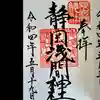 奉拝
静岡浅間神社
令和四年五月十九日